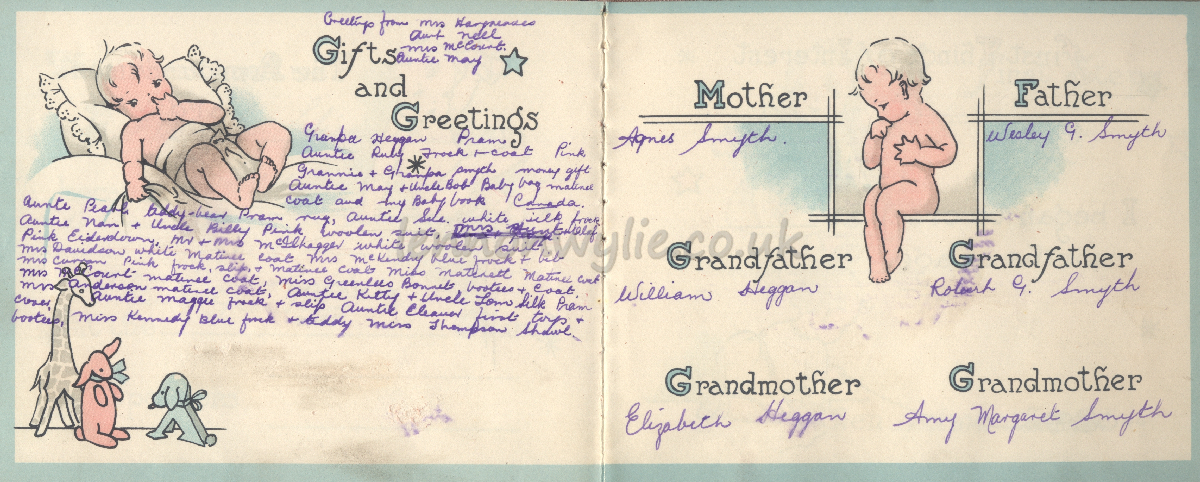 Greetings from Mrs
Aunt Nell
Mrs McCourt.
Auntie May
Gifts
and
Greetings
Granpa Heggan Pram
Auntie Ruby Frock + coat Pink
Grannie + Granpa Smyth money gift
Auntie May + Uncle Bob Baby bag matinee
coat and my Baby book Canada.
Aunte Pearl teddy-bear Pram rug, Auntie Sue. white silk frock
Auntie Nan + Uncle Billy Pink woolen suit,
Pink Eiderdown, Mr + Mrs white woolen suit
Mrs Davidson white Matinee coat Mrs McKendry blue frock + bib
Mrs Curran Pink frock, slip, + matinee coat Miss Matinee coat
Mrs McCourt matinee coat, Miss Greenlees Bonnet, bootees + coat
Mrs Anderson matinee coat, Auntie Kitty + Uncle Tom Silk Pram
cover, Auntie Maggie frock, + slip Auntie Eleanor first +
bootees, Miss Kennedy Blue frock + teddy Miss Thompson Shawl.
Mother
Father
Agnes Smyth.
Wesley G. Smyth
Grandfather
Grandfather
William Heggan
Robert G. Smyth
Grandmother
Grandmother
Elizabeth Heggan
Amy Margaret Smyth
wylie.co.uk